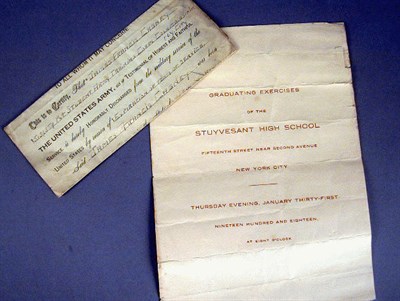 TO ALL WHOM IT MAY CONCERN:
This is to Certify, That
THE UNITED STATES ARMY, as a Testimonial of Honest and Faithful
Service, is hereby Honorably Discharged from the military service of the
United States by reason of
Said
GRADUATING EXERCISES
OF THE
STUYVESANT HIGH SCHOOL
FIFTEENTH STREET NEAR SECOND AVENUE
NEW YORK CITY
THURSDAY EVENING, JANUARY THIRTY-FIRST
NINETEEN HUNDRED AND EIGHTEEN,
AT EIGHT O'CLOCK